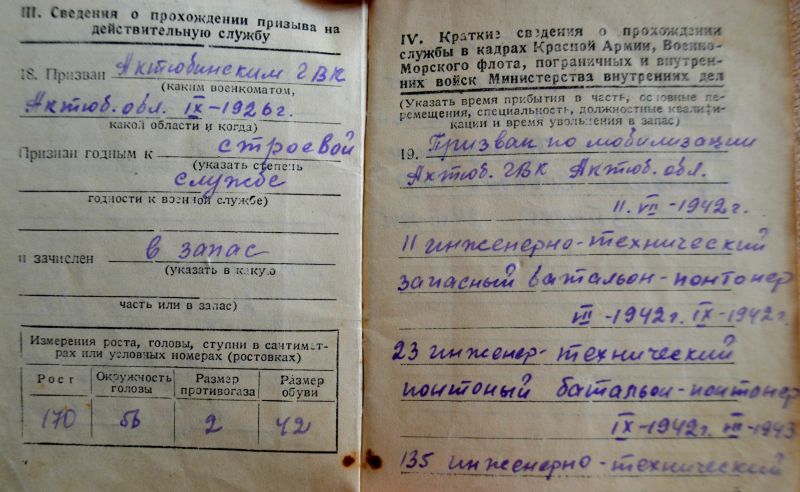 III. Сведения о прохождении призыва на
действительную службу
18. Призван Актюбинским ГВК
(каким военкоматом,
Актюб. обл. IX-1926г.
какой области и когда)
Признан годным к строевой
(указать степень
службе
годности к военной службе)
и зачислен в запас
(указать в какую
часть или в запас)
Измерения роста, головы, ступни в сантимет-
рах или условных номерах (ростовках)
Рост Окружность головы Размер противогаза Размер обуви
170 56 2 42
IV. Краткие сведения о прохождении
службы в кадрах Красной Армии, Военно-
Морского флота, пограничных и внутрен-
них войск Министерства внутренних дел
(Указать время прибытия в часть, основные пе-
ремещения, специальность, должностные квалифи-
кации и время увольнения в запас)
19. Призван по мобилизации
Актюб. ГВК Актюб. обл.
11. VII-1942г.
11 инженерно-технический
запасный батальон-понтонер
VII-1942г. IX-1942г.
23 инженер-технический
понтоный батальон-понтонер
IX-1942г. VIII-1943
135 инженерно-технический